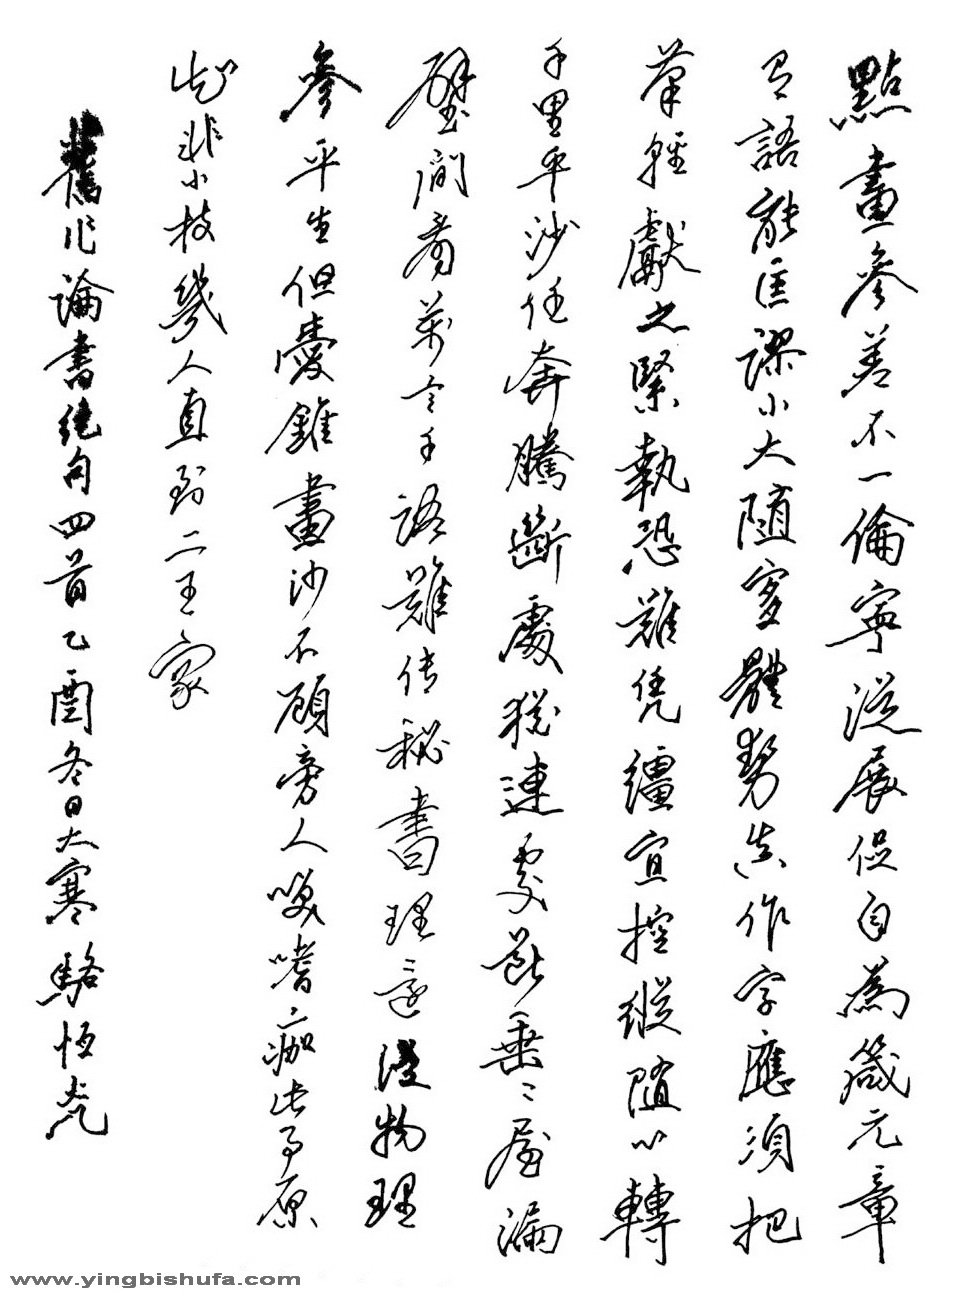 點畫參差不一倫寧從展促自為箴元章
有語能匡謬小大隨宜體勢真作字應須把
筆輕獻之緊執恐難凭繮宜控縱隨心轉
千里平沙任奔騰斷處猶連受最垂〻屋漏
壁間看萬言千語難傳秘書理還從物理
參平生但愛錐畫沙不顧旁人笑嗜痂此事原
非小技幾人直到二王家
舊作論書絕句四首乙酉冬日大寒駱恒光
www.yingbishufa.com